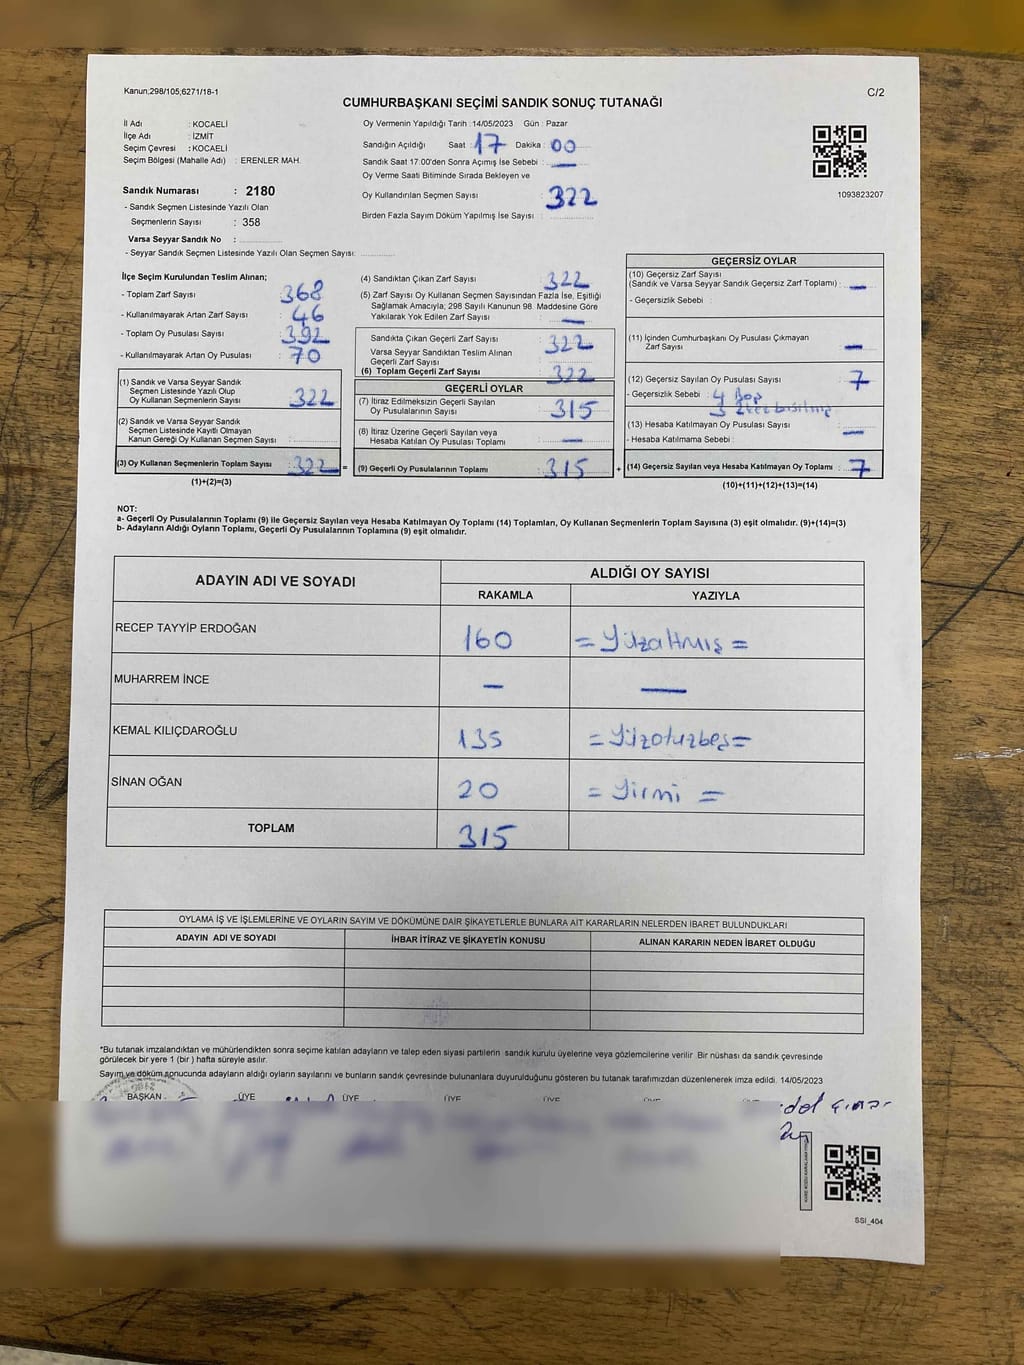 Kanun;298/105;6271/18-1
C/2
CUMHURBAŞKANI SEÇİMİ SANDIK SONUÇ TUTANAĞI
İl Adı : KOCAELİ
İlçe Adı : İZMİT
Seçim Çevresi : KOCAELİ
Seçim Bölgesi (Mahalle Adı) : ERENLER MAH.
Sandık Numarası : 2180
- Sandık Seçmen Listesinde Yazılı Olan
Seçmenlerin Sayısı : 358
Varsa Seyyar Sandık No :
- Seyyar Sandık Seçmen Listesinde Yazılı Olan Seçmen Sayısı:
Oy Vermenin Yapıldığı Tarih :14/05/2023 Gün : Pazar
Sandığın Açıldığı Saat : 17 Dakika : 00
Sandık Saat 17.00'den Sonra Açımış İse Sebebi : —
Oy Verme Saati Bitiminde Sırada Bekleyen ve
Oy Kullandırılan Seçmen Sayısı : 322
Birden Fazla Sayım Döküm Yapılmış İse Sayısı :
1093823207
İlçe Seçim Kurulundan Teslim Alınan;
- Toplam Zarf Sayısı : 368
- Kullanılmayarak Artan Zarf Sayısı : 46
- Toplam Oy Pusulası Sayısı : 392
- Kullanılmayarak Artan Oy Pusulası : 70
(1) Sandık ve Varsa Seyyar Sandık
Seçmen Listesinde Yazılı Olup
Oy Kullanan Seçmenlerin Sayısı : 322
(2) Sandık ve Varsa Seyyar Sandık
Seçmen Listesinde Kayıtlı Olmayan
Kanun Gereği Oy Kullanan Seçmen Sayısı :
(3) Oy Kullanan Seçmenlerin Toplam Sayısı : 322 =
(1)+(2)=(3)
(4) Sandıktan Çıkan Zarf Sayısı : 322
(5) Zarf Sayısı Oy Kullanan Seçmen Sayısından Fazla İse, Eşitliği
Sağlamak Amacıyla; 298 Sayılı Kanunun 98. Maddesine Göre
Yakılarak Yok Edilen Zarf Sayısı : —
Sandıkta Çıkan Geçerli Zarf Sayısı : 322
Varsa Seyyar Sandıktan Teslim Alınan
Geçerli Zarf Sayısı
(6) Toplam Geçerli Zarf Sayısı : 322
GEÇERLİ OYLAR
(7) İtiraz Edilmeksizin Geçerli Sayılan
Oy Pusulalarının Sayısı : 315
(8) İtiraz Üzerine Geçerli Sayılan veya
Hesaba Katılan Oy Pusulası Toplamı : —
(9) Geçerli Oy Pusulalarının Toplamı : 315 +
GEÇERSİZ OYLAR
(10) Geçersiz Zarf Sayısı
(Sandık ve Varsa Seyyar Sandık Geçersiz Zarf Toplamı) : —
- Geçersizlik Sebebi :
(11) İçinden Cumhurbaşkanı Oy Pusulası Çıkmayan
Zarf Sayısı : —
(12) Geçersiz Sayılan Oy Pusulası Sayısı : 7
- Geçersizlik Sebebi : 4 Boş
3
(13) Hesaba Katılmayan Oy Pusulası Sayısı : —
- Hesaba Katılmama Sebebi :
(14) Geçersiz Sayılan veya Hesaba Katılmayan Oy Toplamı : 7
(10)+(11)+(12)+(13)=(14)
NOT:
a- Geçerli Oy Pusulalarının Toplamı (9) ile Geçersiz Sayılan veya Hesaba Katılmayan Oy Toplamı (14) Toplamları, Oy Kullanan Seçmenlerin Toplam Sayısına (3) eşit olmalıdır. (9)+(14)=(3)
b- Adayların Aldığı Oyların Toplamı, Geçerli Oy Pusulalarının Toplamına (9) eşit olmalıdır.
ADAYIN ADI VE SOYADI
ALDIĞI OY SAYISI
RAKAMLA YAZIYLA
RECEP TAYYİP ERDOĞAN 160 = Yüzaltmış =
MUHARREM İNCE — —
KEMAL KILIÇDAROĞLU 135 = Yüzotuzbeş =
SİNAN OĞAN 20 = Yirmi =
TOPLAM 315
OYLAMA İŞ VE İŞLEMLERİNE VE OYLARIN SAYIM VE DÖKÜMÜNE DAİR ŞİKAYETLERLE BUNLARA AİT KARARLARIN NELERDEN İBARET BULUNDUKLARI
ADAYIN ADI VE SOYADI İHBAR İTİRAZ VE ŞİKAYETİN KONUSU ALINAN KARARIN NEDEN İBARET OLDUĞU
*Bu tutanak imzalandıktan ve mühürlendikten sonra seçime katılan adayların ve talep eden siyasi partilerin sandık kurulu üyelerine veya gözlemcilerine verilir. Bir nüshası da sandık çevresinde
görülecek bir yere 1 (bir ) hafta süreyle asılır.
Sayım ve döküm sonucunda adayların aldığı oyların sayılarını ve bunların sandık çevresinde bulunanlara duyurulduğunu gösteren bu tutanak tarafımızdan düzenlenerek imza edildi. 14/05/2023
BAŞKAN ÜYE ÜYE ÜYE ÜYE
SSİ_404